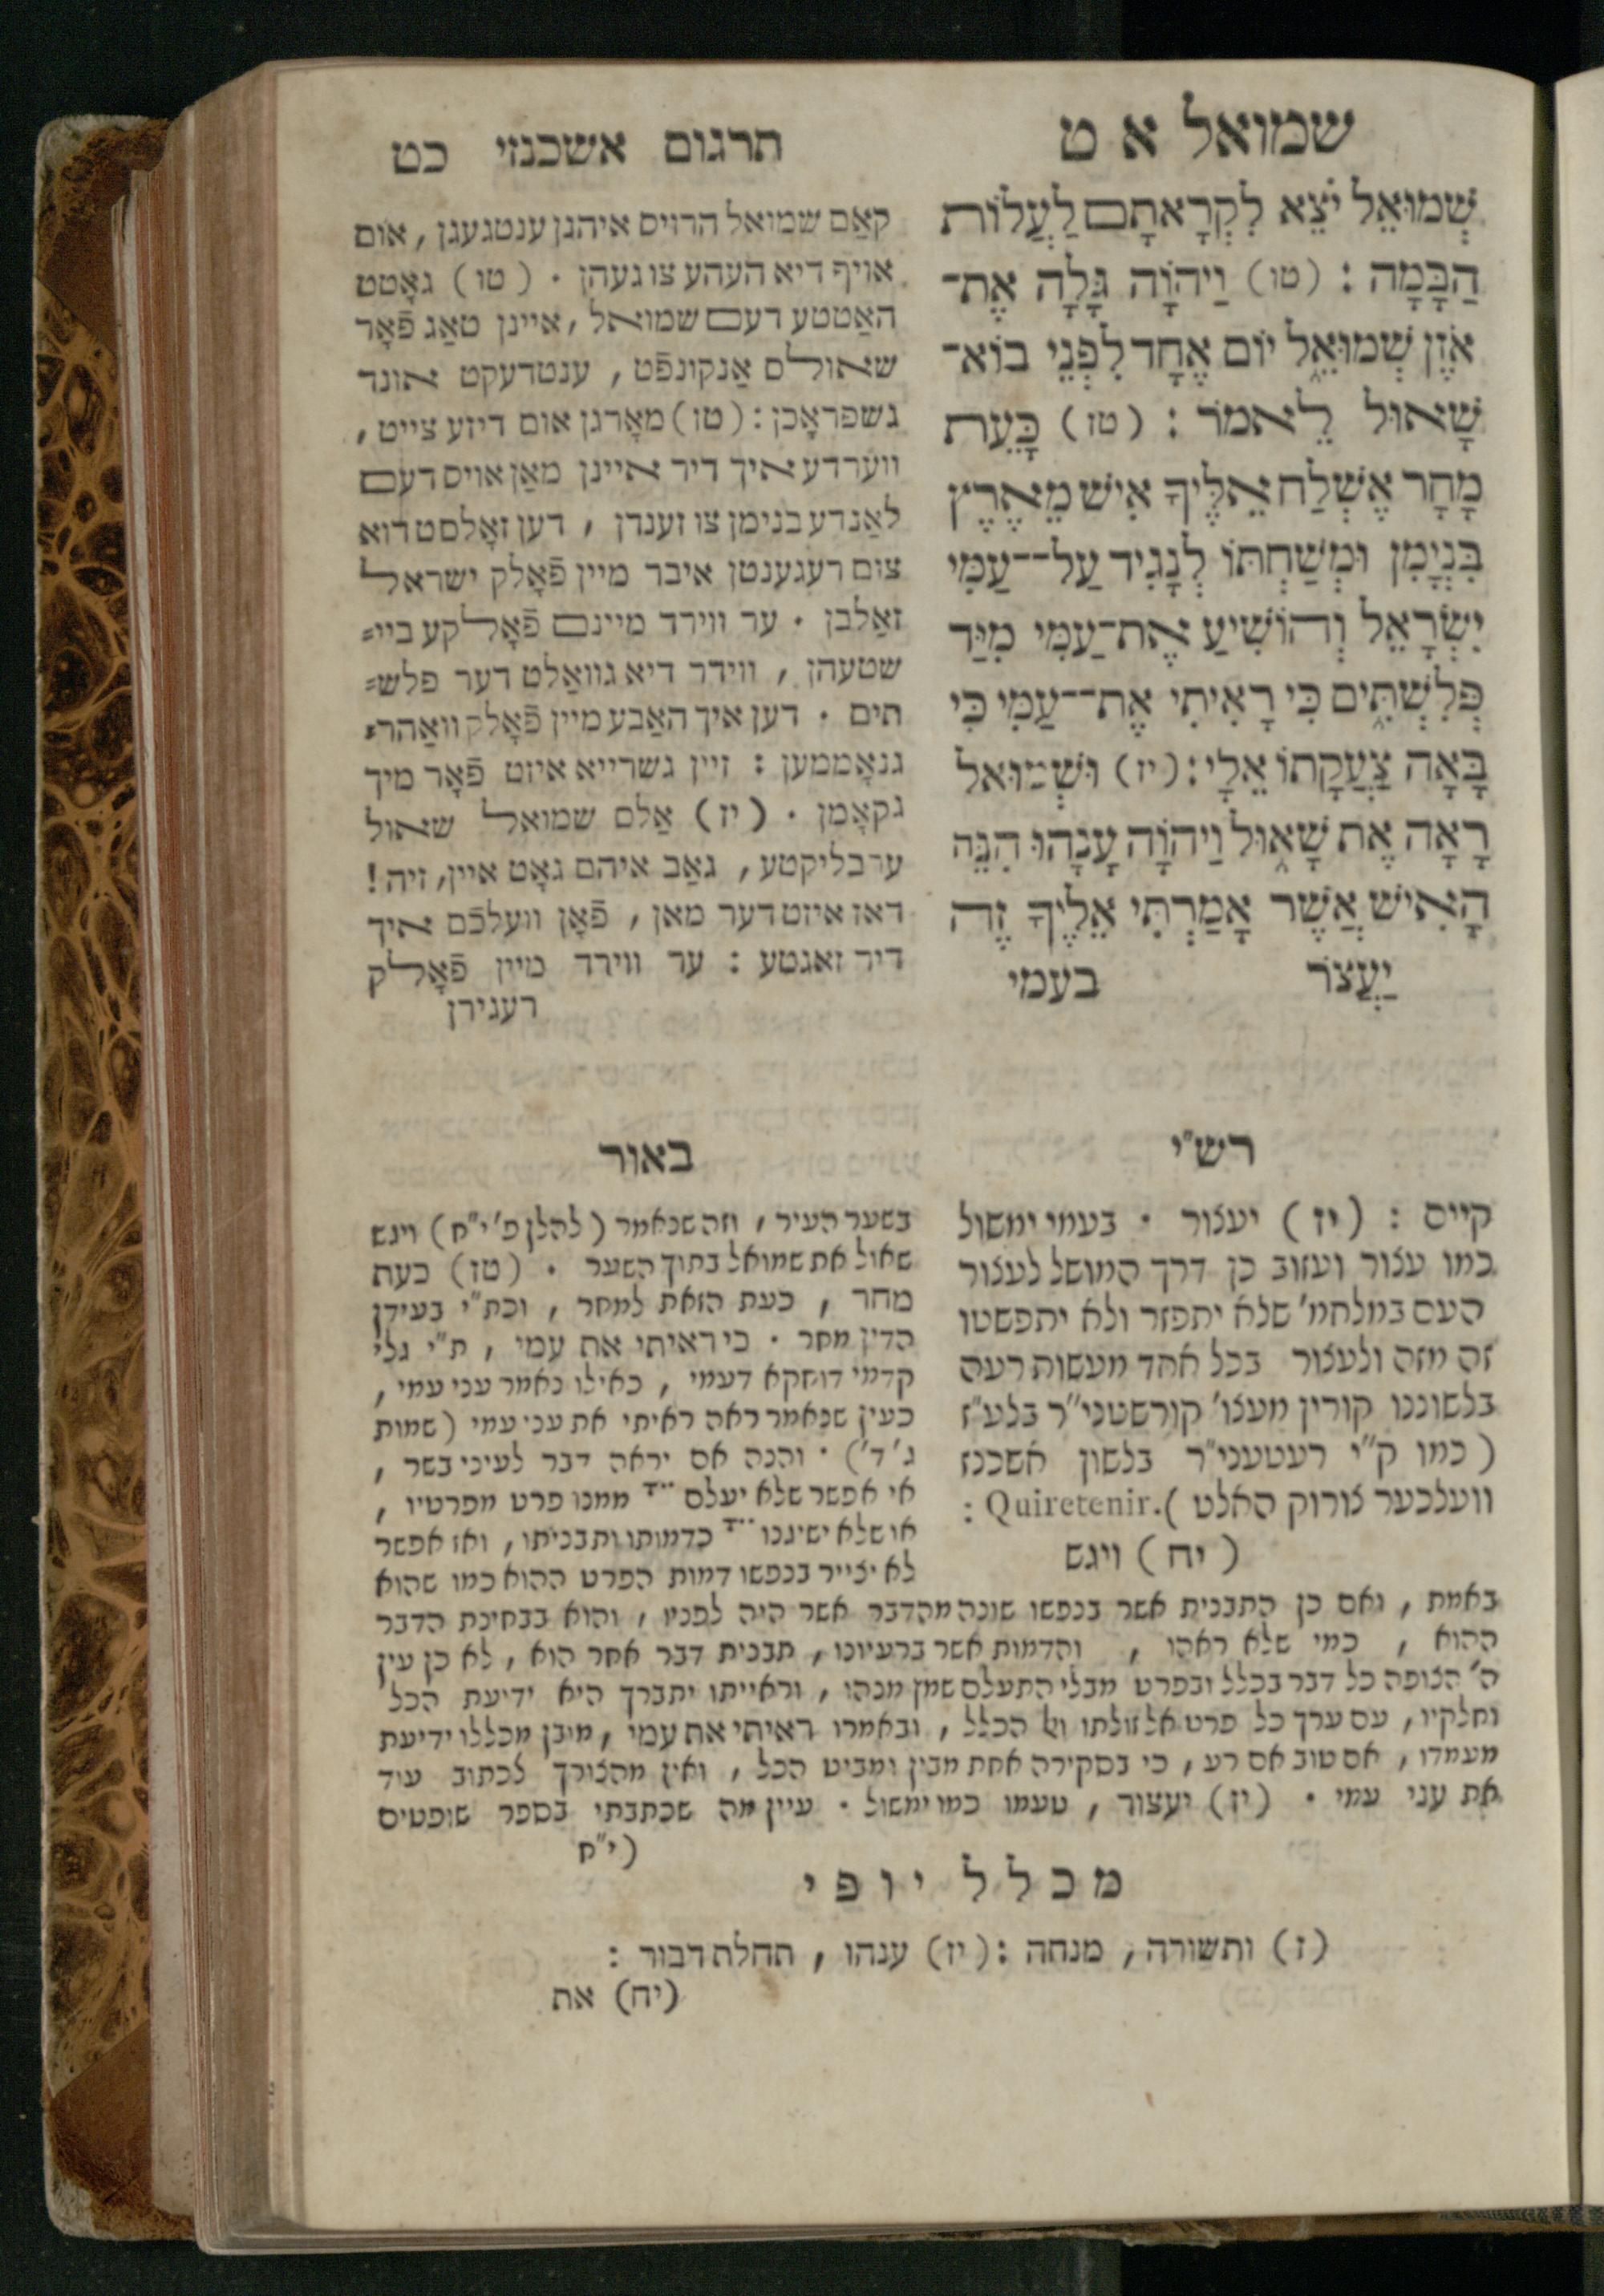 שמואל א ט
שְׁמוּאֵל יֹצֵא לִקְרָאתָם לַעֲלוֹת
הַבָּמָה : (טו) וַיהוָֹה גָּלָה אֶת־
אֹזֶן שְׁמוּאֵל יוֹם אֶחָד לִפְנֵי בוֹא־
שָׁאוּל לֵאמֹר : (טז) כָּעֵת
מָחָר אֶשְׁלַח אֵלֶיךָ אִישׁ מֵאֶרֶץ
בִּנְיָמִן וּמְשַׁחְתּוֹ לְנָגִיד עַל־־עַמִּי
יִשְׂרָאֵל וְהוֹשִׁיעַ אֶת־עַמִּי מִיַּד
פְּלִשְׁתִּים כִּי רָאִיתִי אֶת־־עַמִּי כִּי
בָּאָה צַעֲקָתוֹ אֵלָי : (יז) וּשְׁמוּאֵל
רָאָה אֶת שָׁאוּל וַיהוָֹה עָנָהוּ הִנֵּה
הָאִישׁ אֲשֶׁר אָמַרְתִּי אֵלֶיךָ זֶה
יַעְצֹר בעמי
תרגום אשכנזי כט
קאַם שמואל הרויס איהנן ענטגעגן , אום
אויף דיא העהע צו געהן . (טו) גאָטט
האַטטע דעם שמואל , איינן טאַג פֿאָר
שאולס אַנקונפֿט , ענטדעקט אונד
גשפראָכן : (טז) מאָרגן אום דיזע צייט ,
ווערדע איך דיר איינן מאַן אויס דעם
לאַנדע בנימן צו זענדן , דען זאָלסט דוא
צום רעגענטן איבר מיין פֿאָלק ישראל
זאַלבן . ער ווירד מיינם פֿאָלקע ביי=
שטעהן , ווידר דיא גוואַלט דער פלש=
תים . דען איך האַבע מיין פֿאָלק וואַהר=
גנאָממען : זיין גשרייא איזט פֿאָר מיך
גקאָמן . (יז) אַלס שמואל שאול
ערבליקטע , גאַב איהם גאָט איין , זיה !
דאז איזט דער מאן , פֿאָן וועלכֿם איך
דיר זאגטע : ער ווירד מיין פֿאָלק
רעגירן
רש"י
קיים : (יז) יעצור . בעמי ימשול
כמו עצור ועזוב כן דרך המושל לעצור
העם במלחמ' שלא יתפזר ולא יתפשטו
זה מזה ולעצור בכל אחד מעשות רעה
בלשוננו קורין מעצו' קורשטני"ר בלע"ז
( כמו ק"י רעטעני"ר בלשון אשכנז
וועלכער צורוק האלט ).Quiretenir :
( יח ) ויגש
באור
בשער העיר , וזה שנאמר (להלן פ' י"ח) ויגש
שאול את שמואל בתוך השער . (טז) כעת
מחר , כעת הזאת למחר , וכת"י בעידן
הדין מחר . כי ראיתי את עמי , ת"י גלי
קדמי דוחקא דעמי , כאילו נאמר עני עמי ,
כעין שנאמר ראה ראיתי את עני עמי (שמות
ג' ד') . והנה אם יראה דבר לעיני בשר ,
אי אפשר שלא יעלם ממנו פרט מפרטיו ,
או שלא ישיגנו כדמותו ותבניתו , ואז אפשר
לא יצייר בנפשו דמות הפרט ההוא כמו שהוא
באמת , ואם כן התבנית אשר בנפשו שונה מהדבר אשר היה לפניו , והוא בבחינת הדבר
ההוא , כמי שלא ראהו , והדמות אשר ברעיונו , תבנית דבר אחר הוא , לא כן עין
ה' הצופה כל דבר בכלל ובפרט מבלי התעלם שמץ מנהו , וראייתו יתברך היא ידיעת הכל
וחלקיו , עם ערך כל פרט אל זולתו ואל הכלל , ובאמרו ראיתי את עמי , מובן מכללו ידיעת
מעמדו , אם טוב אם רע , כי בסקירה אחת מבין ומביט הכל , ואין מהצורך לכתוב עוד
את עני עמי . (יז) יעצור , טעמו כמו ימשול . עיין מה שכתבתי בספר שופטים
(י"ח
מכלל יופי
(ז) ותשורה , מנחה : (יז) ענהו , תחלת דבור :
(יח) את